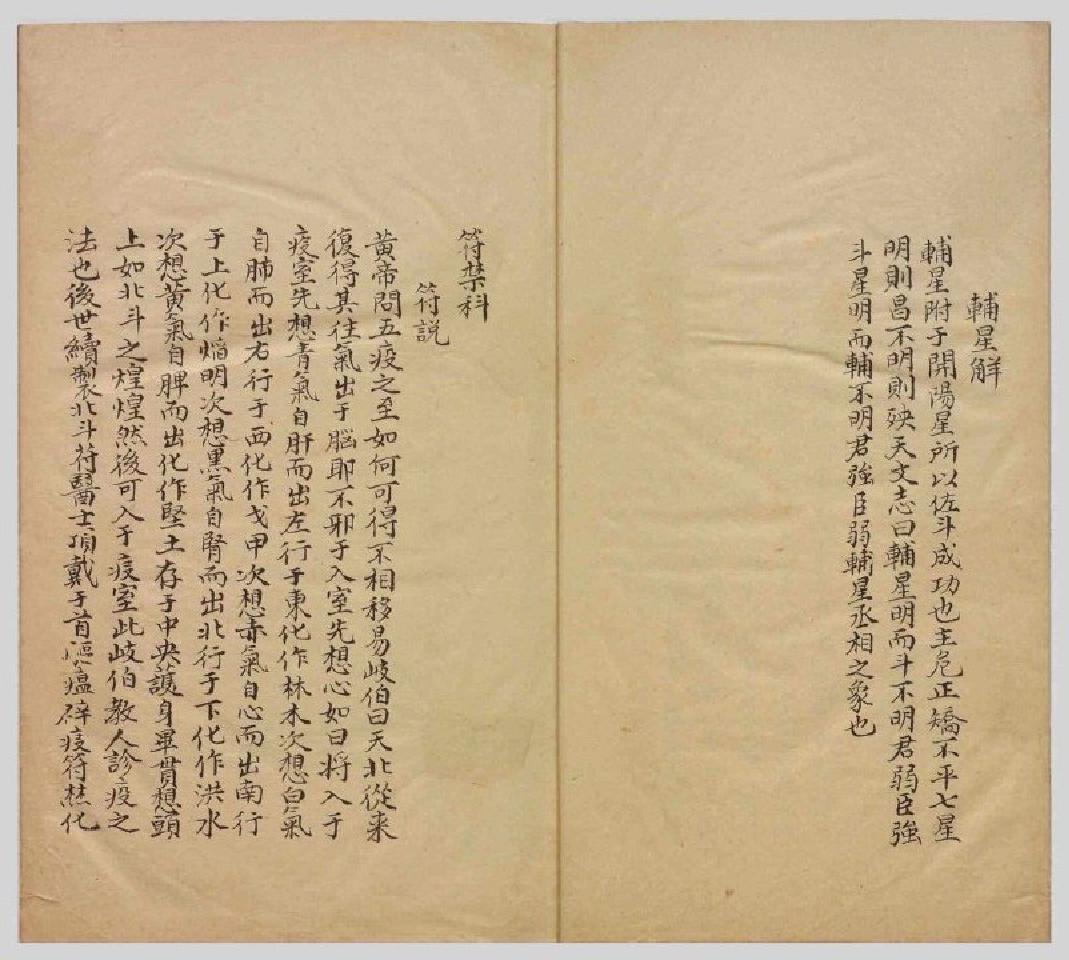 輔星解
輔星附于開陽星所以佐斗成功也主危正矯不平七星
明則昌不明則殃天文志曰輔星明而斗不明君弱臣強
斗星明而輔不明君強臣弱輔星丞相之象也
符禁科
符説
黃帝問五疫之至如何可得不相移易岐伯曰天北從来
復得其往氣出于腦耶不邪于入室先想心如日将入于
疫室先想青氣自肝而出左行于東化作林木次想白氣
自肺而出右行于西化作戈甲次想赤氣自心而出南行
于上化作焰明次想黒氣自腎而出北行于下化作洪水
次想黃氣自脾而出化作堅土存于中央護身畢貫想頭
上如北斗之煌煌然後可入于疫室此岐伯教人診疫之
法也後世續製北斗符醫士頂戴于首瘟辟疫符化